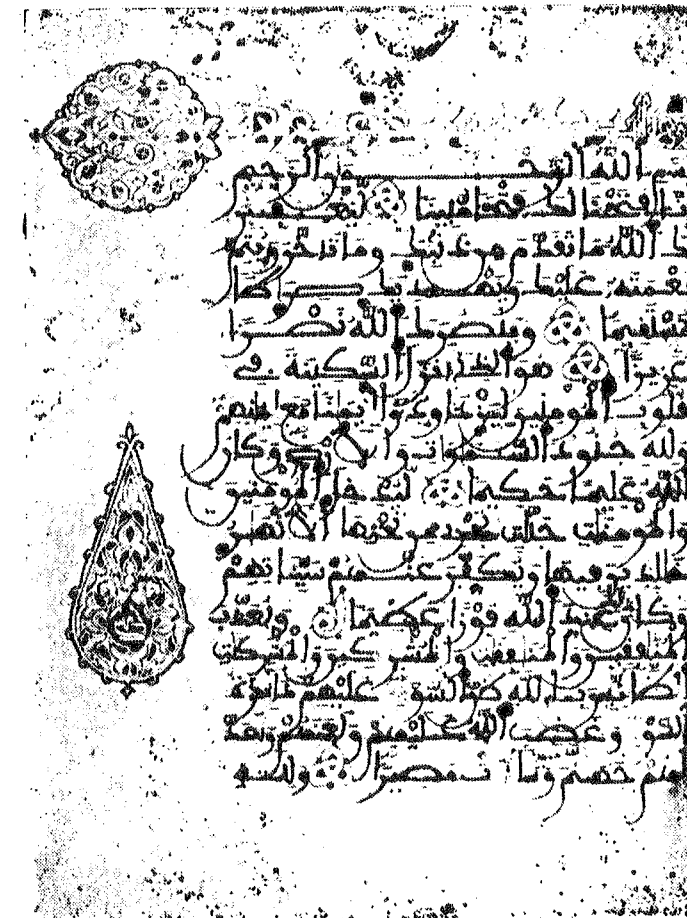 بسم الله الرحمن الرحيم
انا فتحنا لك فتحا مبينا ليغفر
لك الله ما تقدم من ذنبك وما تاخر ويتم
نعمته عليك ويهديك صراطا
مستقيما وينصرك الله نصرا
عزيزا هو الذي انزل السكينة في
قلوب المومنين ليزدادوا ايمنا مع ايمنهم
ولله جنود السموت والارض وكان
الله عليما حكيما ليدخل المومنين
والمومنت جنت تجري من تحتها الانهر
خلدين فيها ويكفر عنهم سياتهم
وكان عند الله فوزا عظيما ويعذب
المنفقين والمنفقت والمشركين والمشركت
الظانين بالله ظن السوء عليهم دائرة
السوء وغضب الله عليهم ولعنهم واعد
لهم جهنم وساءت مصيرا ولله